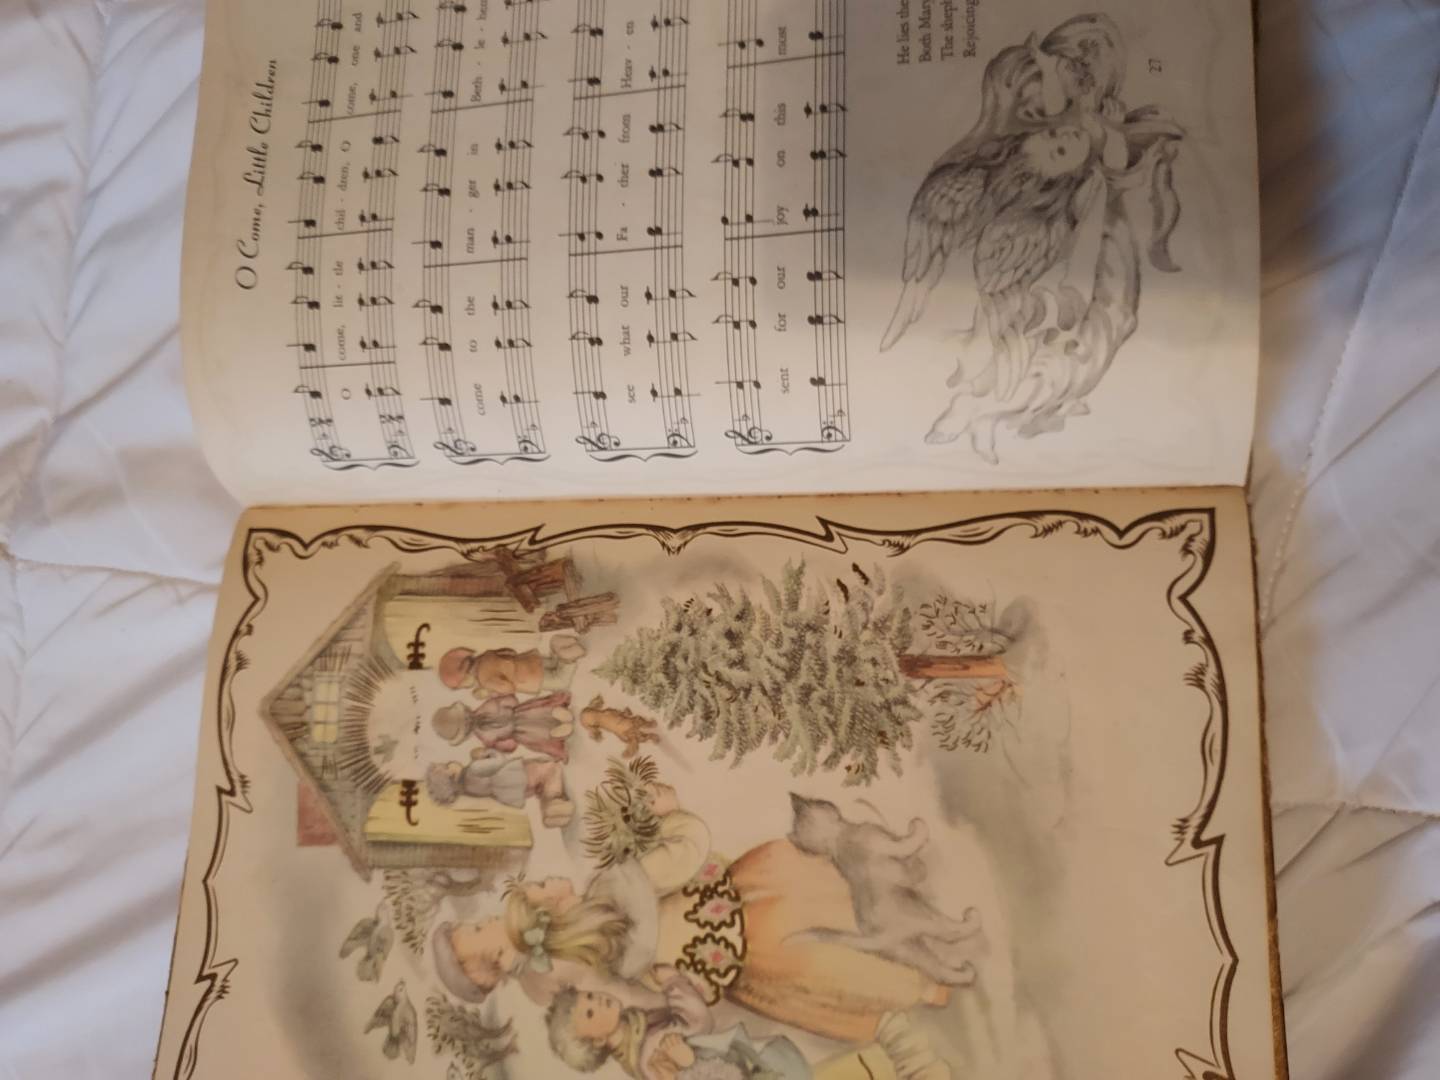 O Come, Little Children
O come, lit - tle chil - dren, O come, one and
come to the man - ger in Beth - le - hem
see what our Fa - ther from Heav - en
sent for our joy on this most
He lies the
Both Mary
The sheph
Rejoicing
27